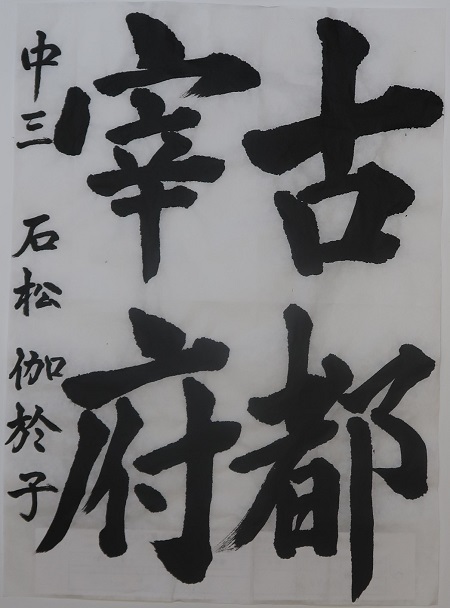 古都
宰府
中三 石松 伽於子